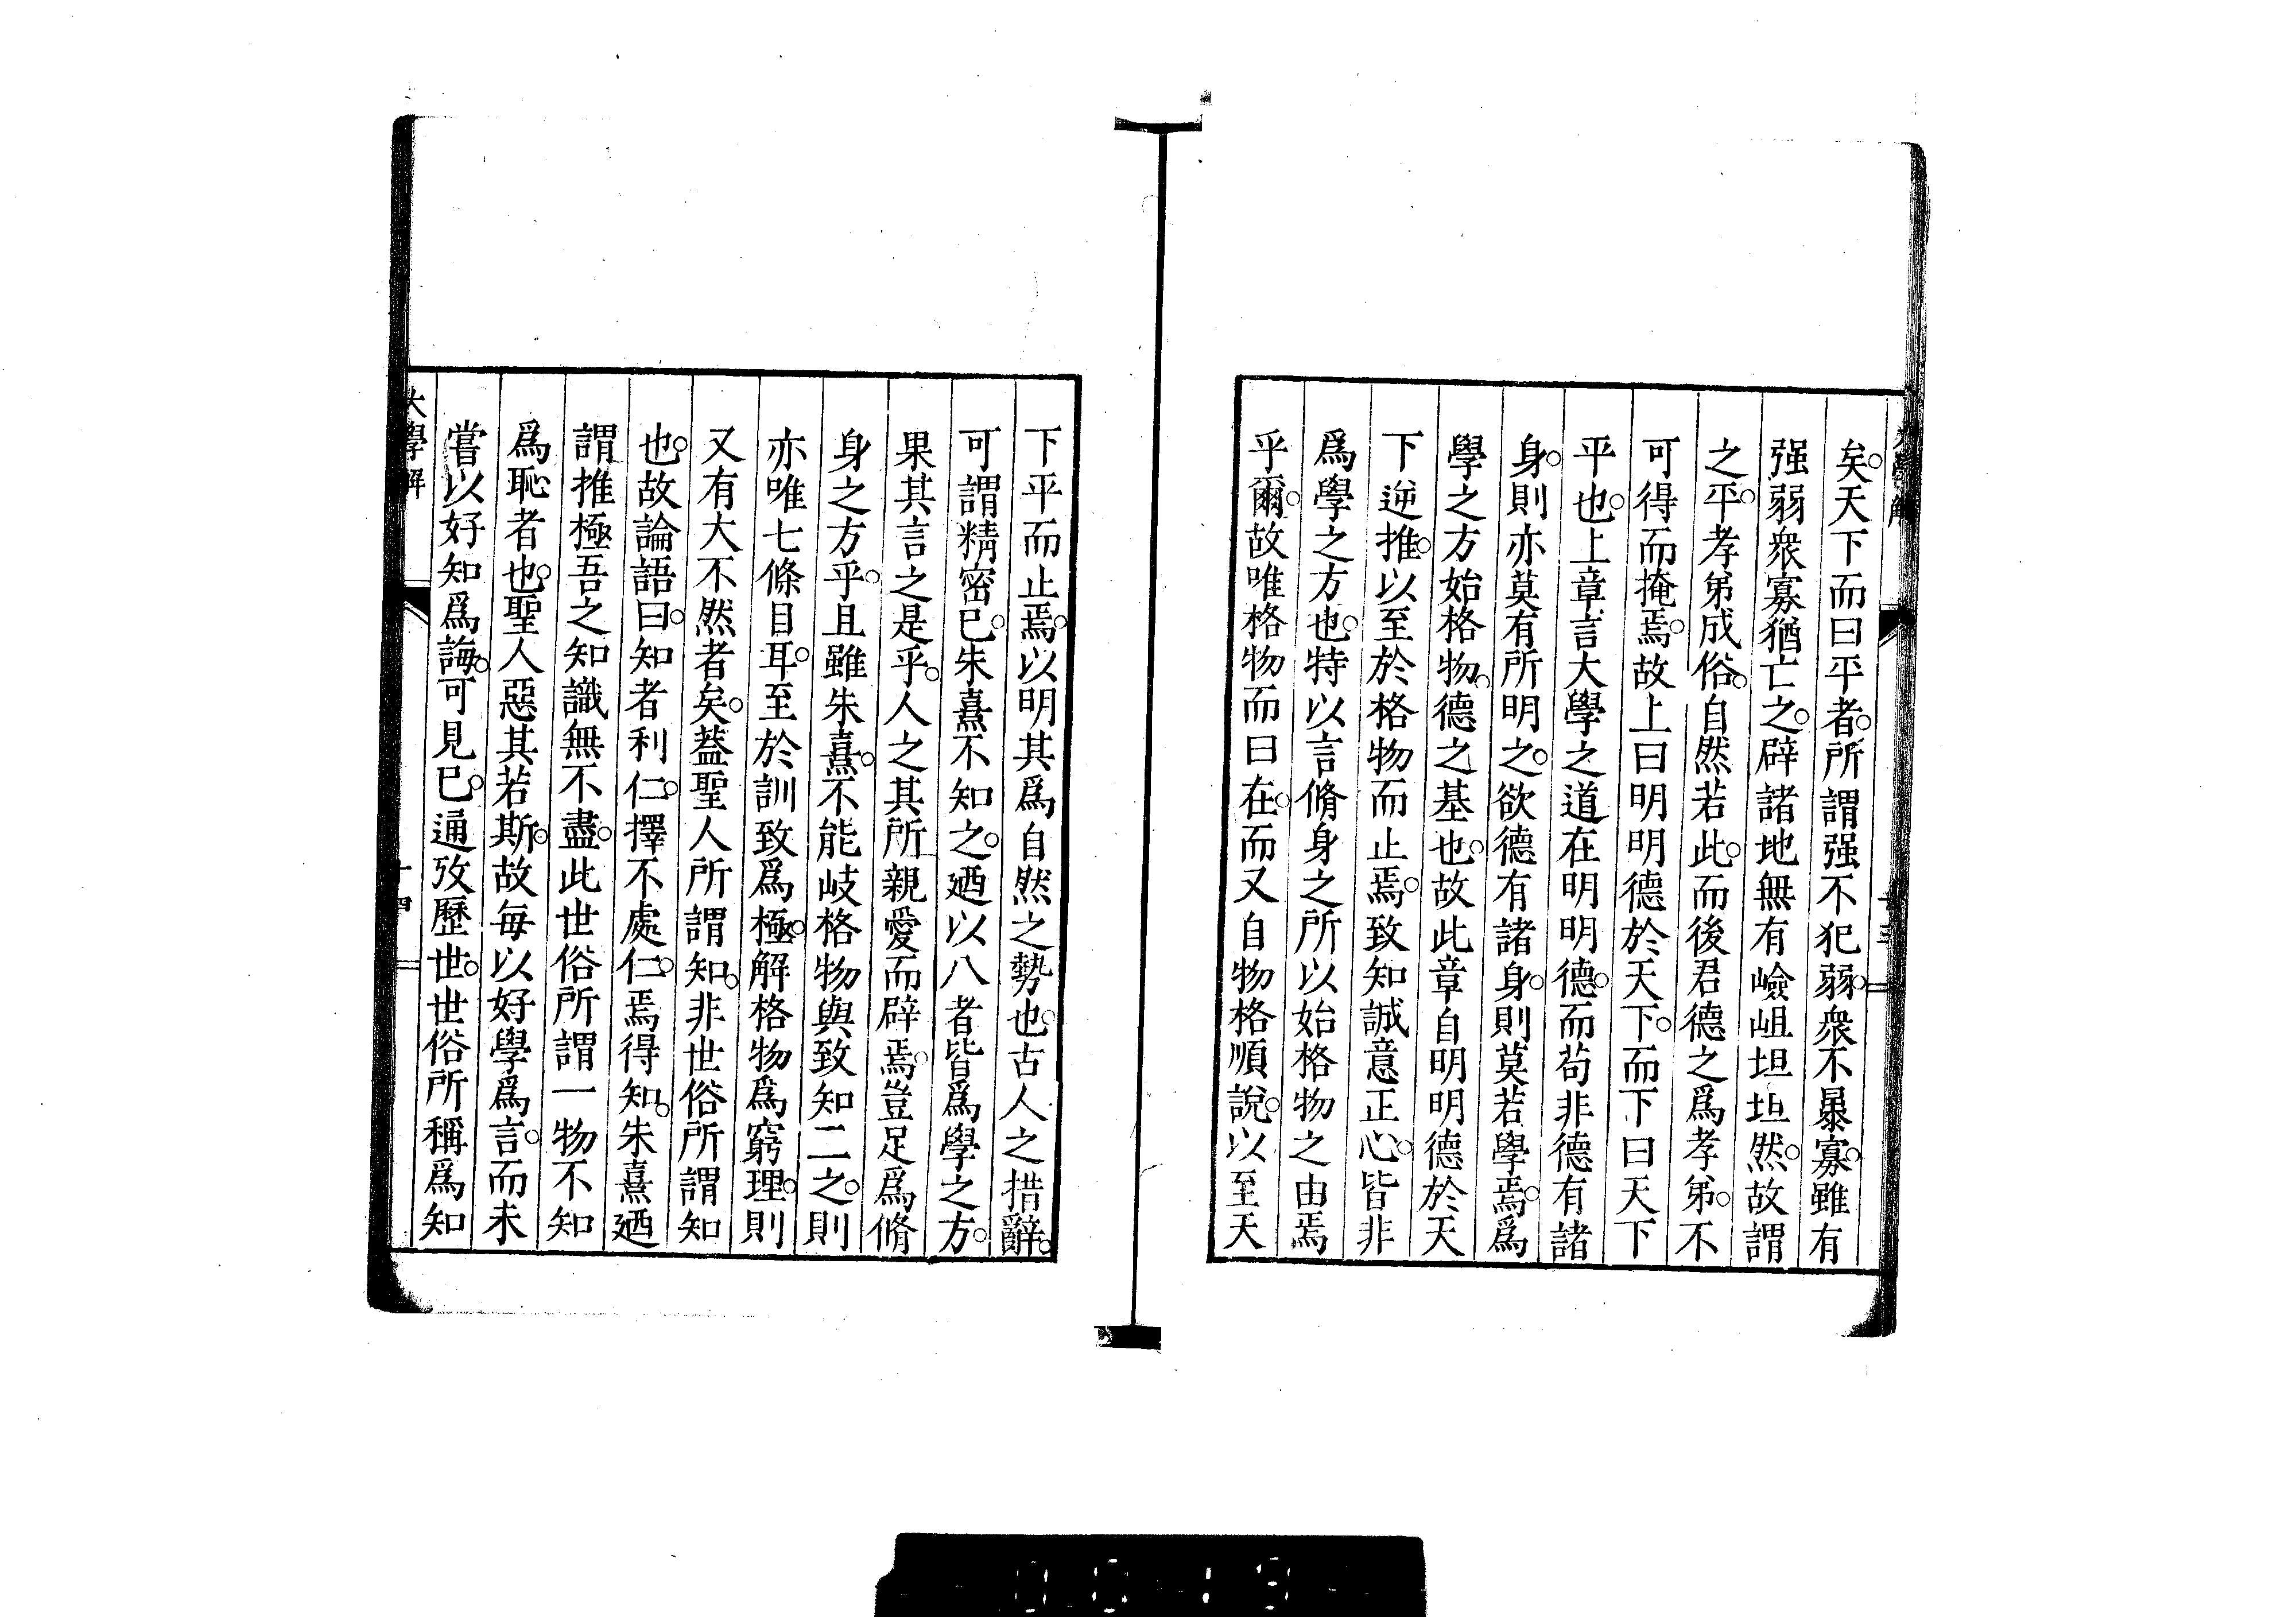 大學解
十三
矣。天下而曰平者。所謂强不犯弱。衆不暴寡。雖有
强弱衆寡猶亡之。辟諸地無有嶮岨坦坦然。故謂
之平。孝弟成俗。自然若此。而後君德之爲孝弟。不
可得而掩焉。故上曰明明德於天下。而下曰天下
平也。上章言大學之道在明明德。而苟非德有諸
身。則亦莫有所明之。欲德有諸身。則莫若學焉。爲
學之方始格物。德之基也。故此章自明明德於天
下逆推。以至於格物而止焉。致知誠意正心。皆非
爲學之方也。特以言脩身之所以始格物之由焉
乎爾。故唯格物而曰在。而又自物格順說。以至天
下平而止焉。以明其爲自然之勢也。古人之措辭。
可謂精密已。朱熹不知之。廼以八者皆爲學之方。
果其言之是乎。人之其所親愛而辟焉。豈足爲脩
身之方乎。且雖朱熹。不能岐格物與致知二之。則
亦唯七條目耳。至於訓致爲極。解格物爲窮理。則
又有大不然者矣。蓋聖人所謂知。非世俗所謂知
也。故論語曰。知者利仁。擇不處仁。焉得知。朱熹廼
謂推極吾之知識無不盡。此世俗所謂一物不知
爲恥者也。聖人惡其若斯。故每以好學爲言。而未
嘗以好知爲誨。可見已。通攷歷世。世俗所稱爲知
大學解
十四
0013